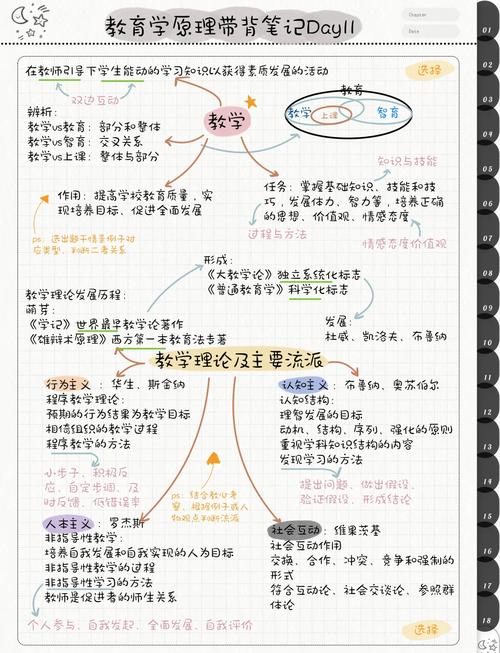 教育学原理带背笔记Day11
Chapter
Date
在教师引导下学生能动的学习知识以获得素质发展的活动
选择
双边互动
辨析：
教学vs教育：部分和整体
教学vs智育：交叉关系
教学vs上课：整体与部分
教学
教育
教学
上课
智育
知识与技能
作用：提高学校教育质量，实
现培养目标、促进全面发展
任务：掌握基础知识、技能和技
巧，发展体力、智力等，培养正确
的思想、价值观、情感态度
过程与方法
情感态度价值观
ps：选出题干情景例子对
应类型、判断二者关系
形成：
《大教学论》独立系统化标志
《普通教育学》科学化标志
教学理论发展历程：
萌芽：
《学记》世界最早教学论著作
《雄辩术原理》西方第一本教育法专著
发展：
杜威、凯洛夫、布鲁纳
教学理论及主要流派
行为主义：华生、斯金纳
程序教学理论：
预期的行为结果为教学目标
相倚组织的教学过程
程序教学的方法
小步子、积极反
应、自定步调、及
时反馈、低错误率
认知主义：布鲁纳、奥苏伯尔
认知结构：
理智发展的目标
动机、结构、序列、强化的原则
重视学科知识结构的内容
发现学习的方法
提出问题、做出假设、
验证假设、形成结论
ps：结合教心考
察，根据例子或人
物观点判断流派
人本主义：罗杰斯
非指导性教学：
培养自我发展和自我实现的人为目标
非指导性教学的过程
非指导性学习的方法
教师是促进者的师生关系
个人参与、自我发起、全面发展、自我评价
社会互动：维果茨基
社会互动作用
交换、合作、冲突、竞争和强制的
形式
符合互动论、社会交谈论、参照群
体论
选择
01
02
03
04
05
06
07
08
09
10
11
12
13
14
15
16
17
18